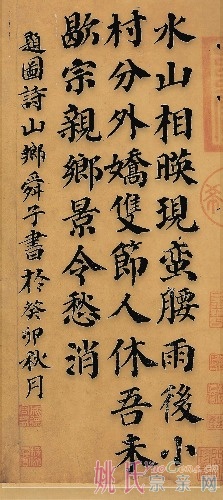 水山相暎現蛮腰雨後小
村分外嬌雙節人休吾未
歇宗親鄉景令愁消
題圖詩山鄉舜子書於癸卯秋月
姚氏宗亲网